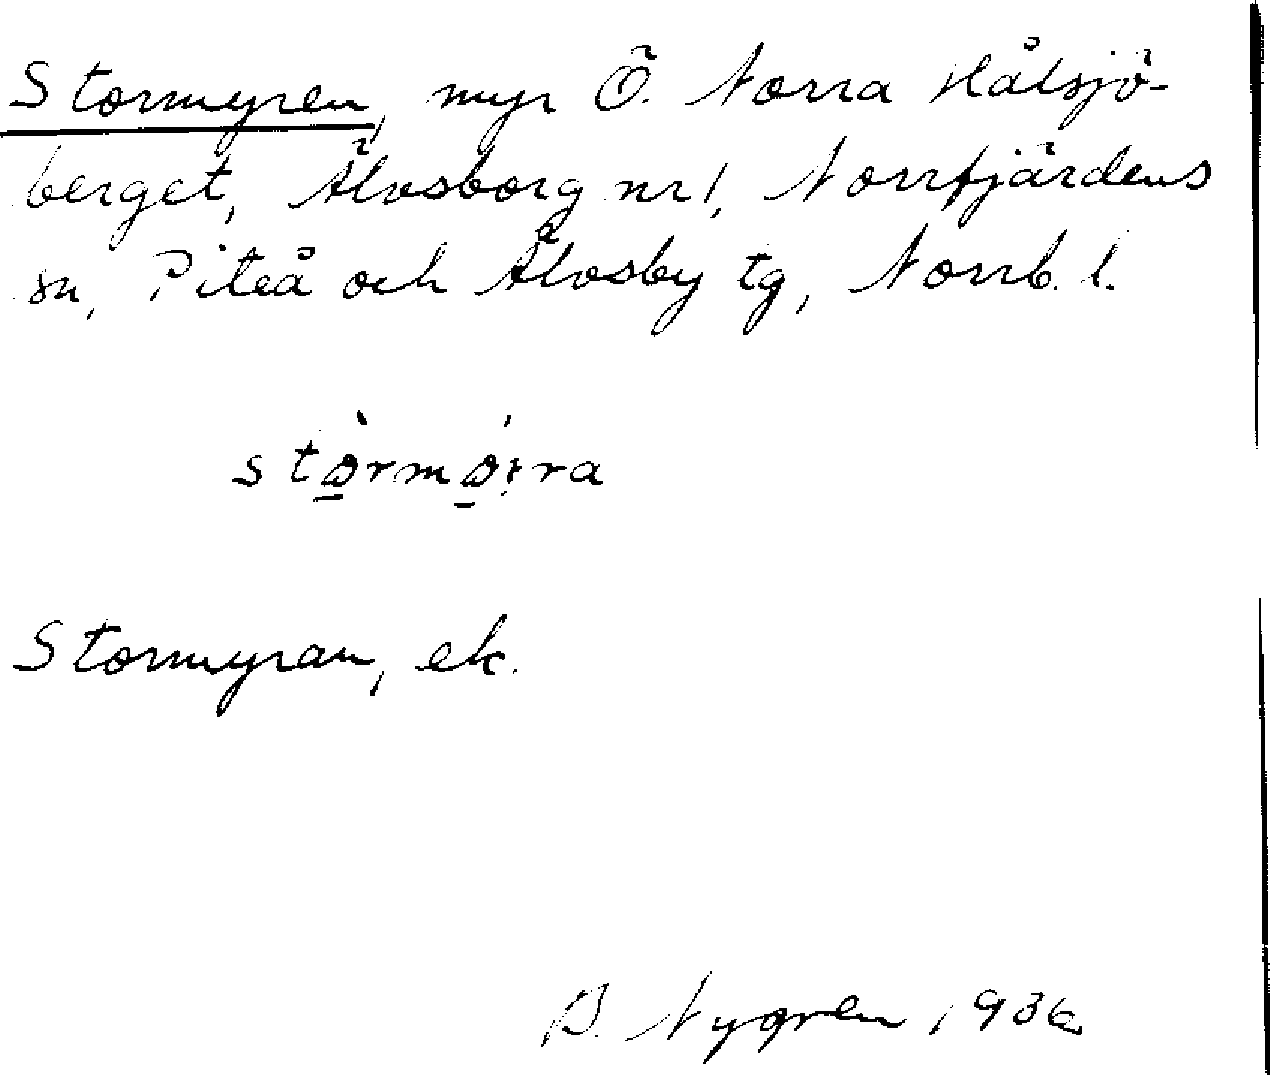 Stormyren, myr Ö. Norra Hålsjö-
berget, Älvsborg nr 1, Norrfjärdens
sn, Piteå och Älvsby tg, Norrb. l.
stǿrmǿira
Stormyran, ek.
B. Nygren 1936